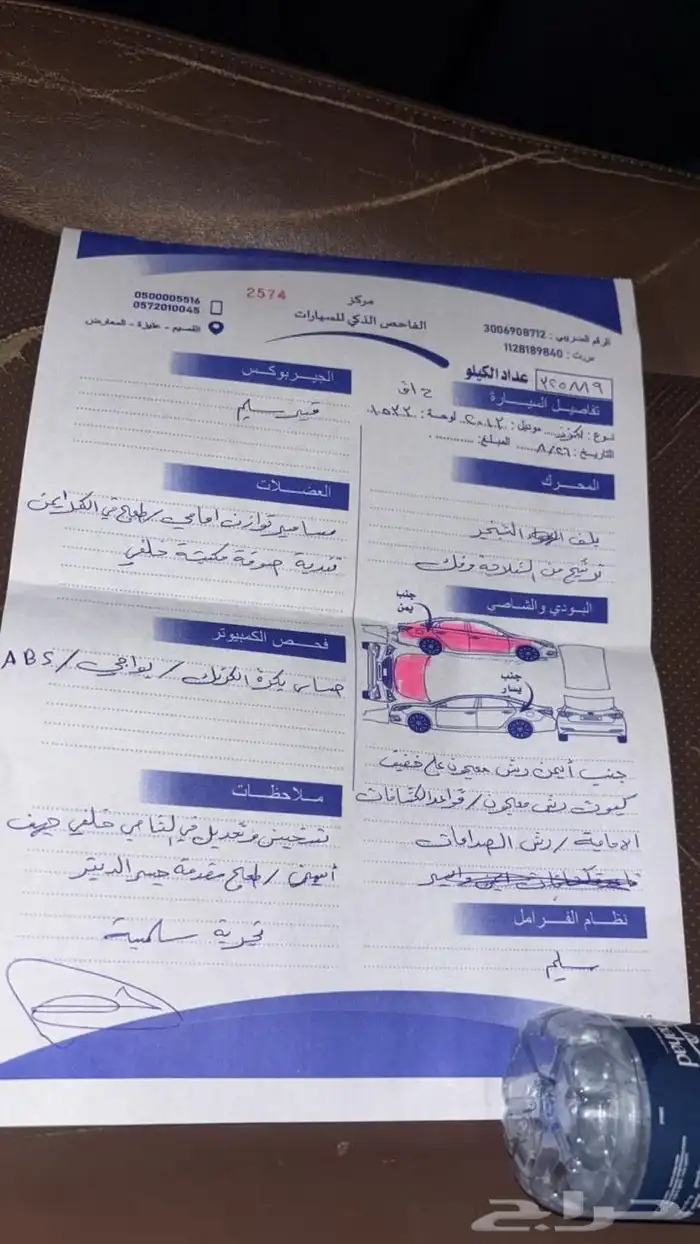 مركز
الفاحص الذكي للسيارات
2574
0500005516
0572010045
القصيم - عنيزة - المعارض
الرقم الضريبي : 3006908712
س.ت : 1128189840
عداد الكيلو ٣٢٥٨٨٩
تفاصيل السيارة
نوع : لكزز موديل : ٢٠١٢ لوحة : ١٥٣٢
التاريخ : ٨/٢٦ المبلغ :
المحرك
بلف التبخر
ترشيح من الثلاجة وفك
البودي والشاصي
جنب
يمن
جنب
يسار
جنب أيمن رش معجون على خفيف
كبوت رش معجون / قواعد الكشافات
الامامية / رش الصدامات
نظام الفرامل
سليم
الجيربوكس
قير سليم
العضلات
مسامير توازن امامي / طعاج في الكلر ايمن
تندية صوفة مكينة خلفي
فحص الكمبيوتر
حساس بكرة الكرنك / بواجي / ABS
ملاحظات
تدخين وتعديل في الشاصي خلفي جهة
أيمن / طعاج مقدمة جسر الديتر
تجربة سلمية
Berhad
حراج